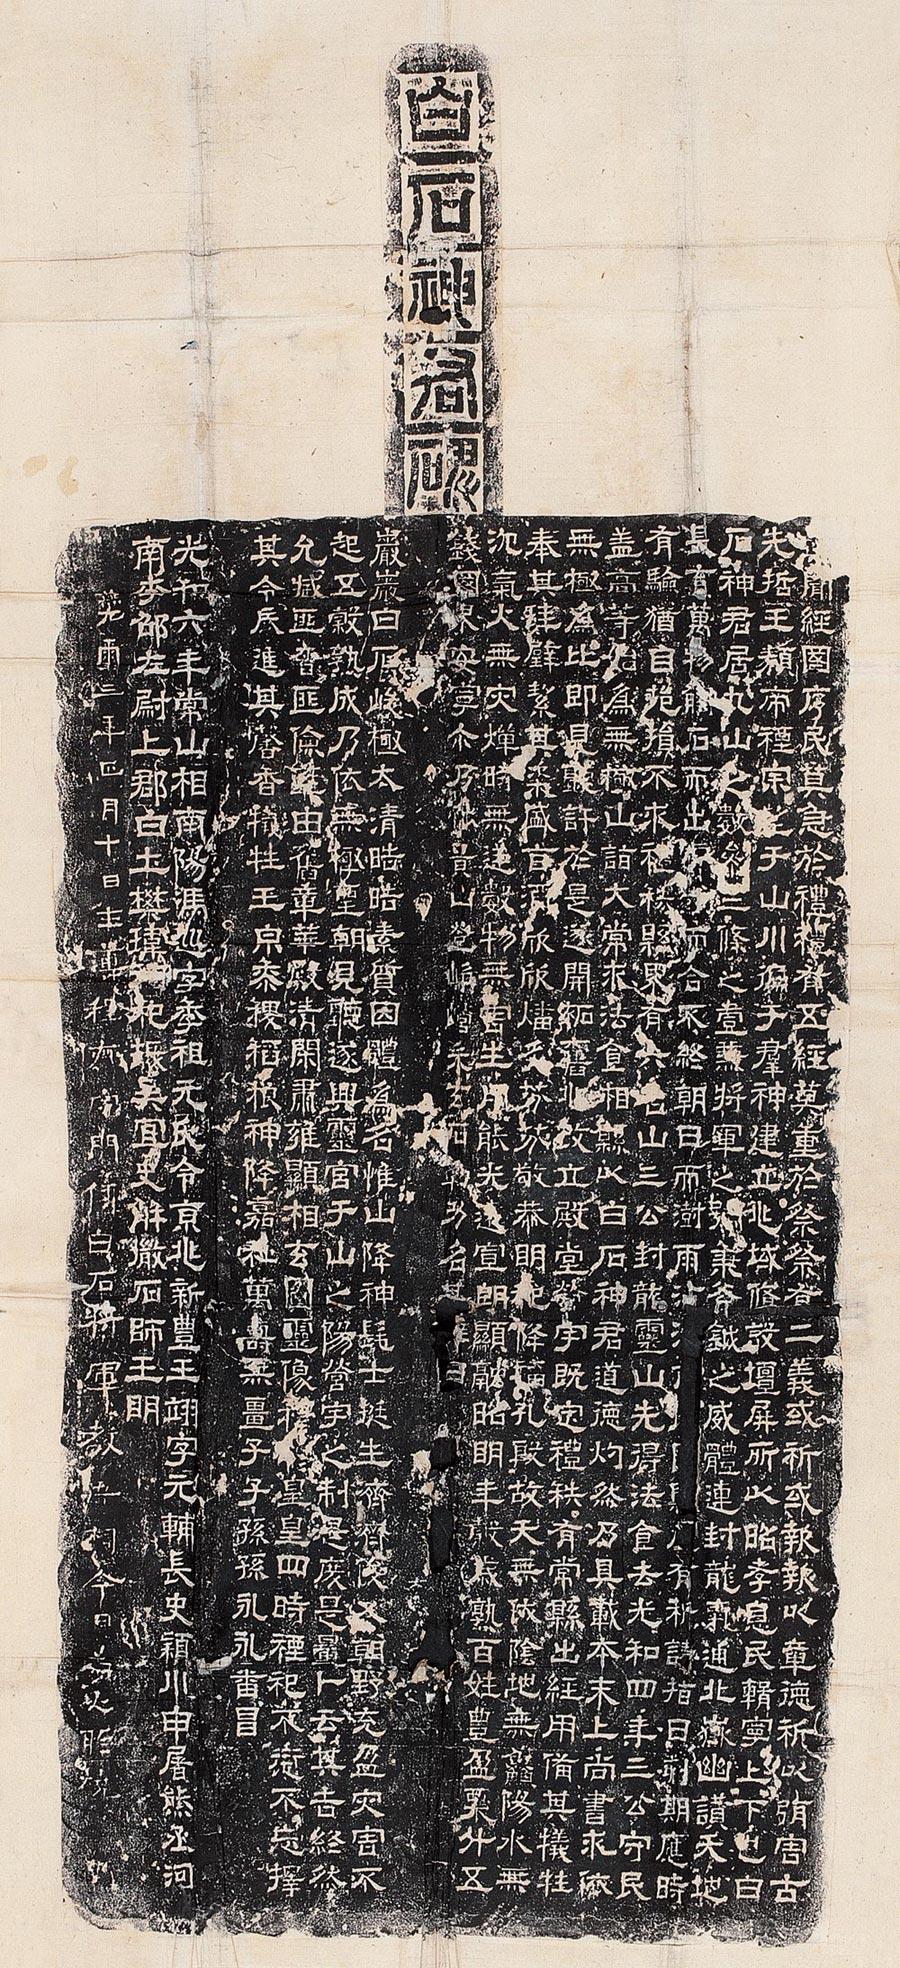 白石神君碑
聞經國序民莫急於禮禮有五經莫重於祭祭有二義或祈或報報以章德祈以弭害古
先哲王類帝禋宗望于山川徧于羣神建立兆域脩設壇屏所以昭孝息民輯寧上下也白
石神君居九山之數參三條之壹兼將軍之號秉斧鉞之威體連封龍氣通北嶽幽讚天地
長育萬物觸石而出膚寸而合不終朝日而澍雨沾洽前後國縣屢有祈請指日刻期應時
有驗猶自挹損不求禮秩縣界有六名山三公封龍靈山先得法食去光和四年三公守民
蓋高等始為無極山詣大常求法食相縣以白石神君道德灼然乃具載本末上尚書求依
無極為比即見聽許於是遂開拓舊兆改立殿堂營宇既定禮秩有常縣出經用備其犧牲
奉其珪璧絜其粢盛旨酒欣欣燔炙芬芬敬恭明祀降福孔殷故天無伏陰地無鱻陽水無
沉氣火無災燀時無逆數物無害生用能光遠宣朗顯融昭明年穀歲熟百姓豐盈粟升五
錢國界安寧爾乃陟景山登崢嶸采玄石勒功名其辭曰
巖巖白石峻極太清皓皓素質因體為名惟山降神髦士挺生濟濟俊乂朝野充盈災害不
起五穀熟成乃依無極聖朝見聽遂興靈宮于山之陽營宇之制是度是量卜云其吉終然
允臧匪奢匪儉率由舊章華殿清閑肅雍顯相玄圖靈像穆穆皇皇四時禋祀不愆不忘擇
其令辰進其馨香犧牲玉帛黍稷稻粮神降嘉祉萬壽無疆子子孫孫永永番昌
光和六年常山相南陽馮巡字季祖元氏令京兆新豐王翊字元輔長史潁川申屠熊丞河
南李邵左尉上郡白土樊瑋祠祀掾吳宜史解徽石師王明
燕元璽三年正月十日主簿程疵家門傳白石將軍教吾祠今日為火所